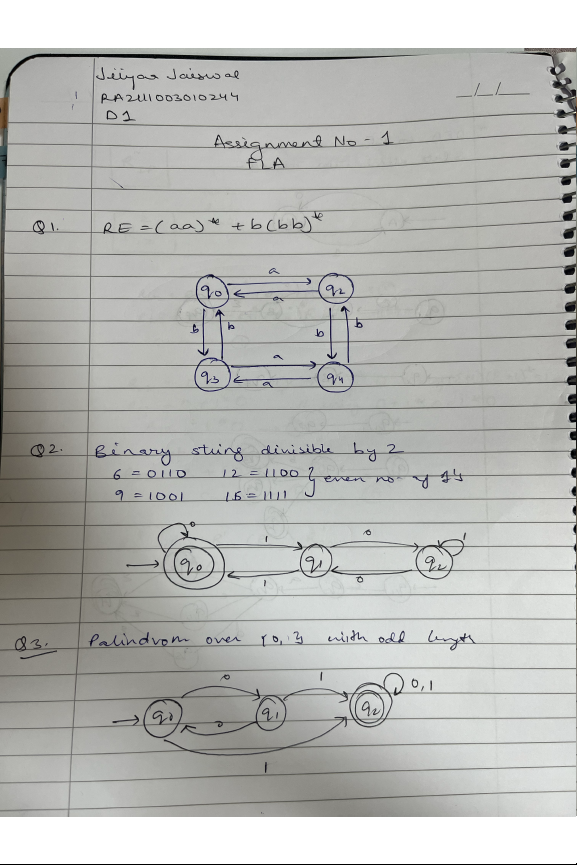 Jiiyar Jaiswal
RA2111003010244
D1
_/_/_
Assignment No - 1
FLA
Q1. RE = (aa)* + b(bb)*
a
q0 q2
a
b b b b
a
q3 q4
a
Q2. Binary string divisible by 2
6 = 0110 12 = 1100 } even no. of 1's
9 = 1001 15 = 1111
0 1 0 1
q0 q1 q2
1 0
Q3. Palindrom over {0,1} with odd length
0 1 0,1
q0 q1 q2
0
1